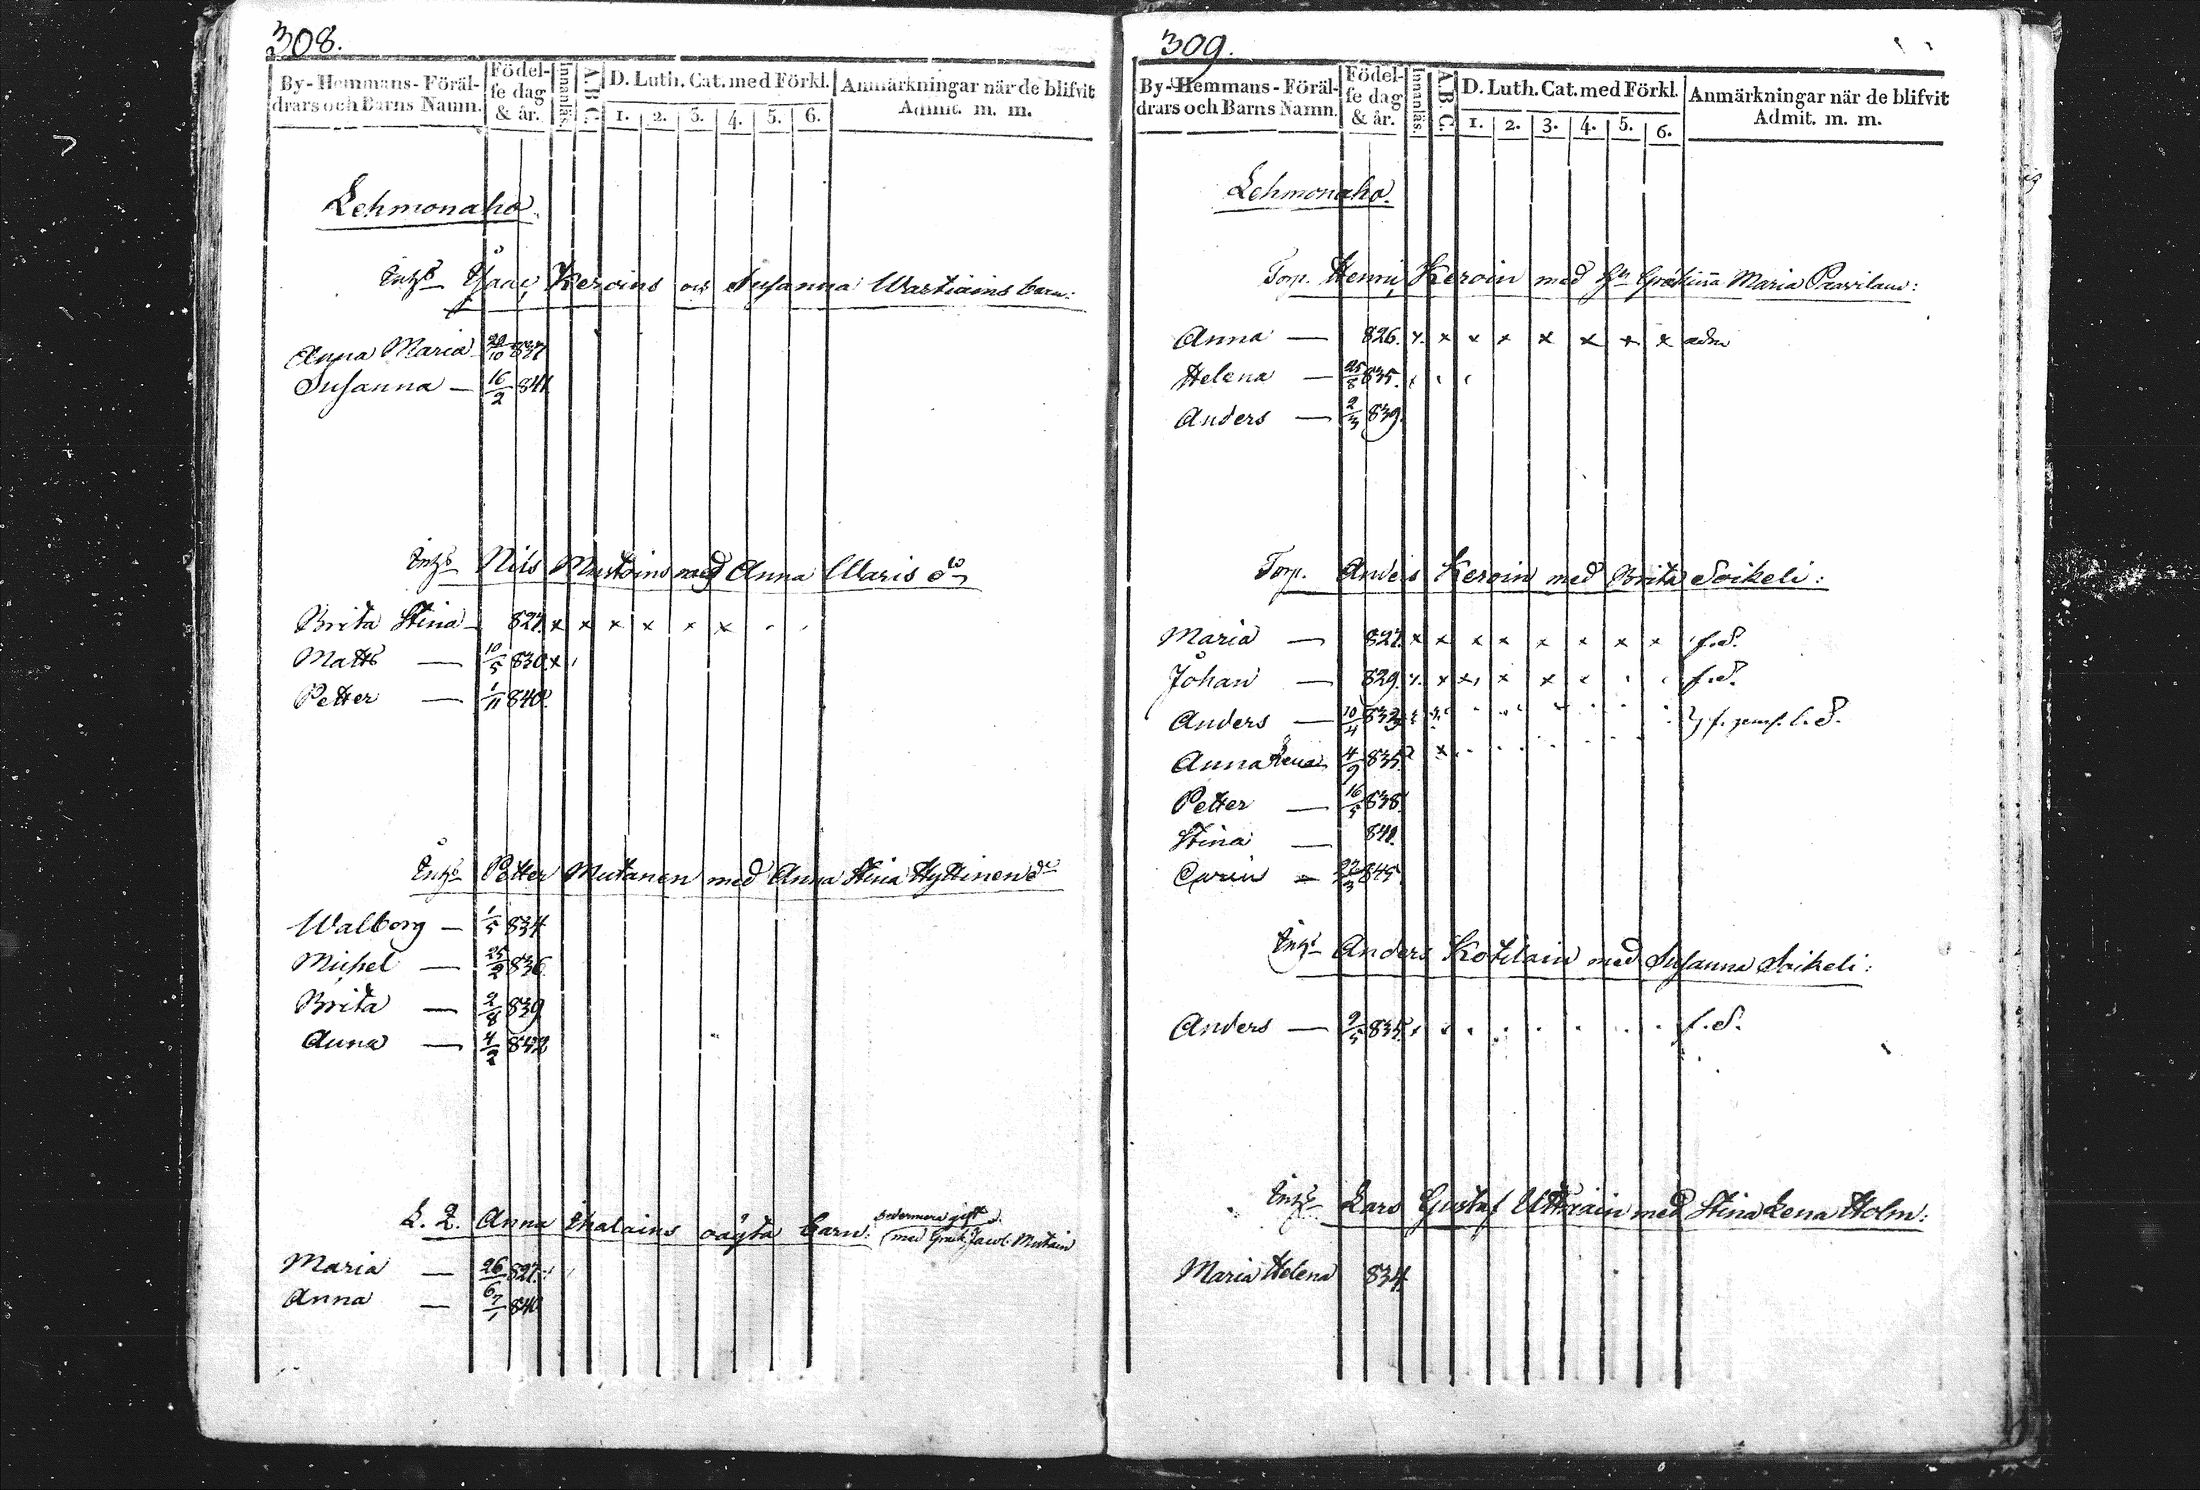 308.
By-Hemmans-Föräldrars och Barns Namn. Födelse dag & år. Innanläs. A.B.C. D. Luth. Cat. med Förkl. 1. 2. 3. 4. 5. 6. Anmärkningar när de blifvit Admit. m. m.
Lehmonaho.
Inhs Isaac Keroins och Susanna Wartiains barn:
Anna Maria 20/10 837
Susanna — 16/2 841
Inhs Nils Mustoins med Anna Waris do
Brita Stina — 827. x x x x x x
Matts — 10/5 830. x
Petter — 1/11 840.
Inhs Petter Mutanen med Anna Stina Hyttinen do
Walborg — 1/5 834
Michel — 25/2 836.
Brita — 2/8 839
Anna — 4/2 842
L. Q. Anna Ihalains oägta barn: sedermera gift
med Jacob Mutain
Maria — 26/6 827.
Anna — 7/1 840
309.
By-Hemmans-Föräldrars och Barns Namn. Födelse dag & år. Innanläs. A.B.C. D. Luth. Cat. med Förkl. 1. 2. 3. 4. 5. 6. Anmärkningar när de blifvit Admit. m. m.
Lehmonaho.
Torp. Henric Keroin med Maria Paavilain:
Anna — 826. x. x x x x x x x adm
Helena — 25/8 835.
Anders — 2/3 839.
Torp. Anders Keroin med Brita Soikeli:
Maria — 827. x x x x x x x x f.d.
Johan — 829. x. x x x x f.d.
Anders — 10/4 832
Anna Lena 4/9 835. x
Petter — 16/5 838.
Stina — 841.
Carin — 22/3 845.
Inhs Anders Kotilain med Susanna Soikeli:
Anders — 9/5 835. f.d.
Inhs Lars Gustaf Uttriain med Stina Lena Holm:
Maria Helena 834.